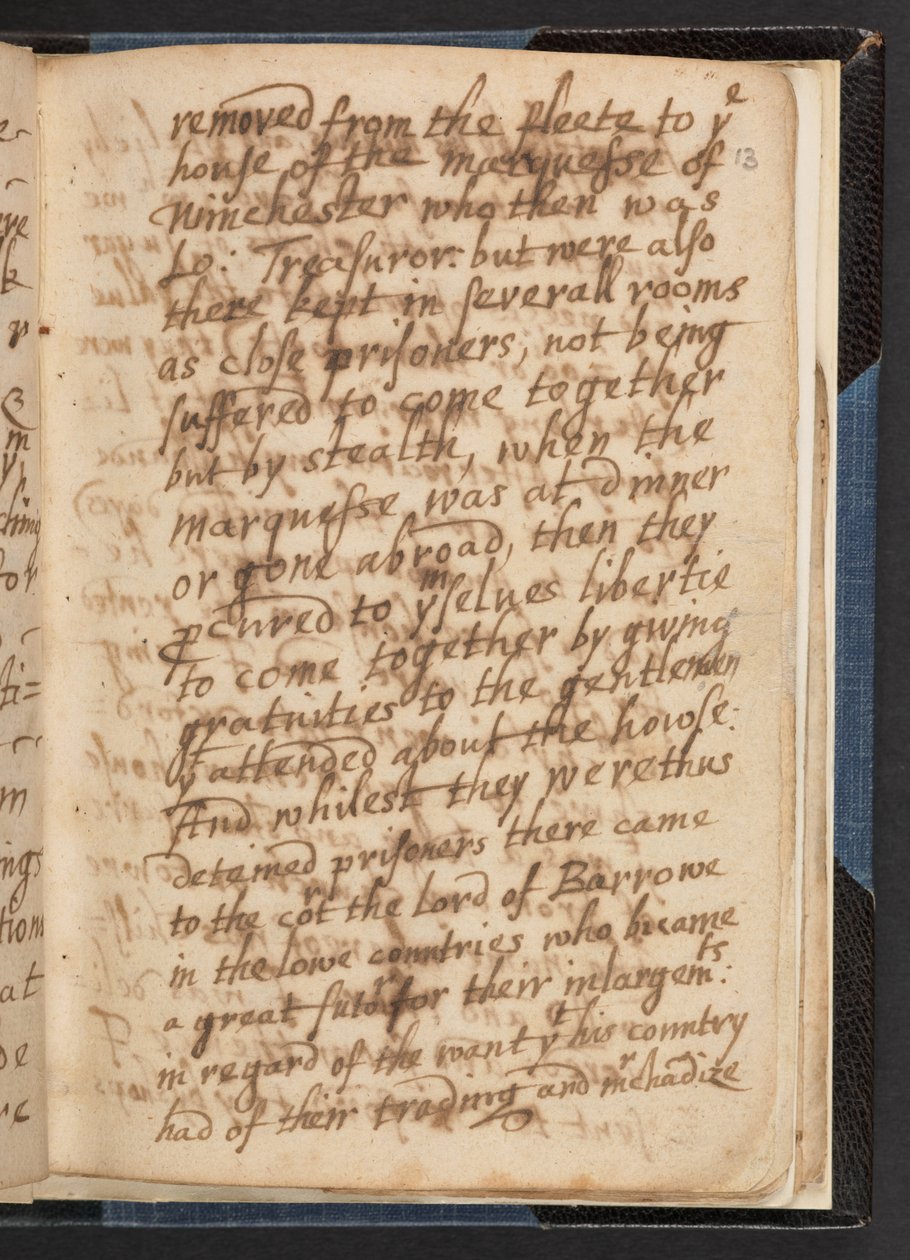 removed from the fleete to yᵉ
13
house of the marquesse of
Winchester who then was
Lo: Treasuror: but were also
there kept in severall rooms
as close prisoners, not being
suffered to come together
but by stealth, when the
marquesse was at dinner
or gone abroad, then they
ꝓcured to yᵐselues libertie
to come together by gwing
gratuities to the gentlemen
yᵗ attended about the howse:
And whilest they were thus
deteined prisoners there came
to the coʳt the Lord of Barrowe
in the lowe countries who became
a great sutoʳ for their inlargemᵗˢ:
in regard of the want yᵗ his country
had of their trading and mʳchādize